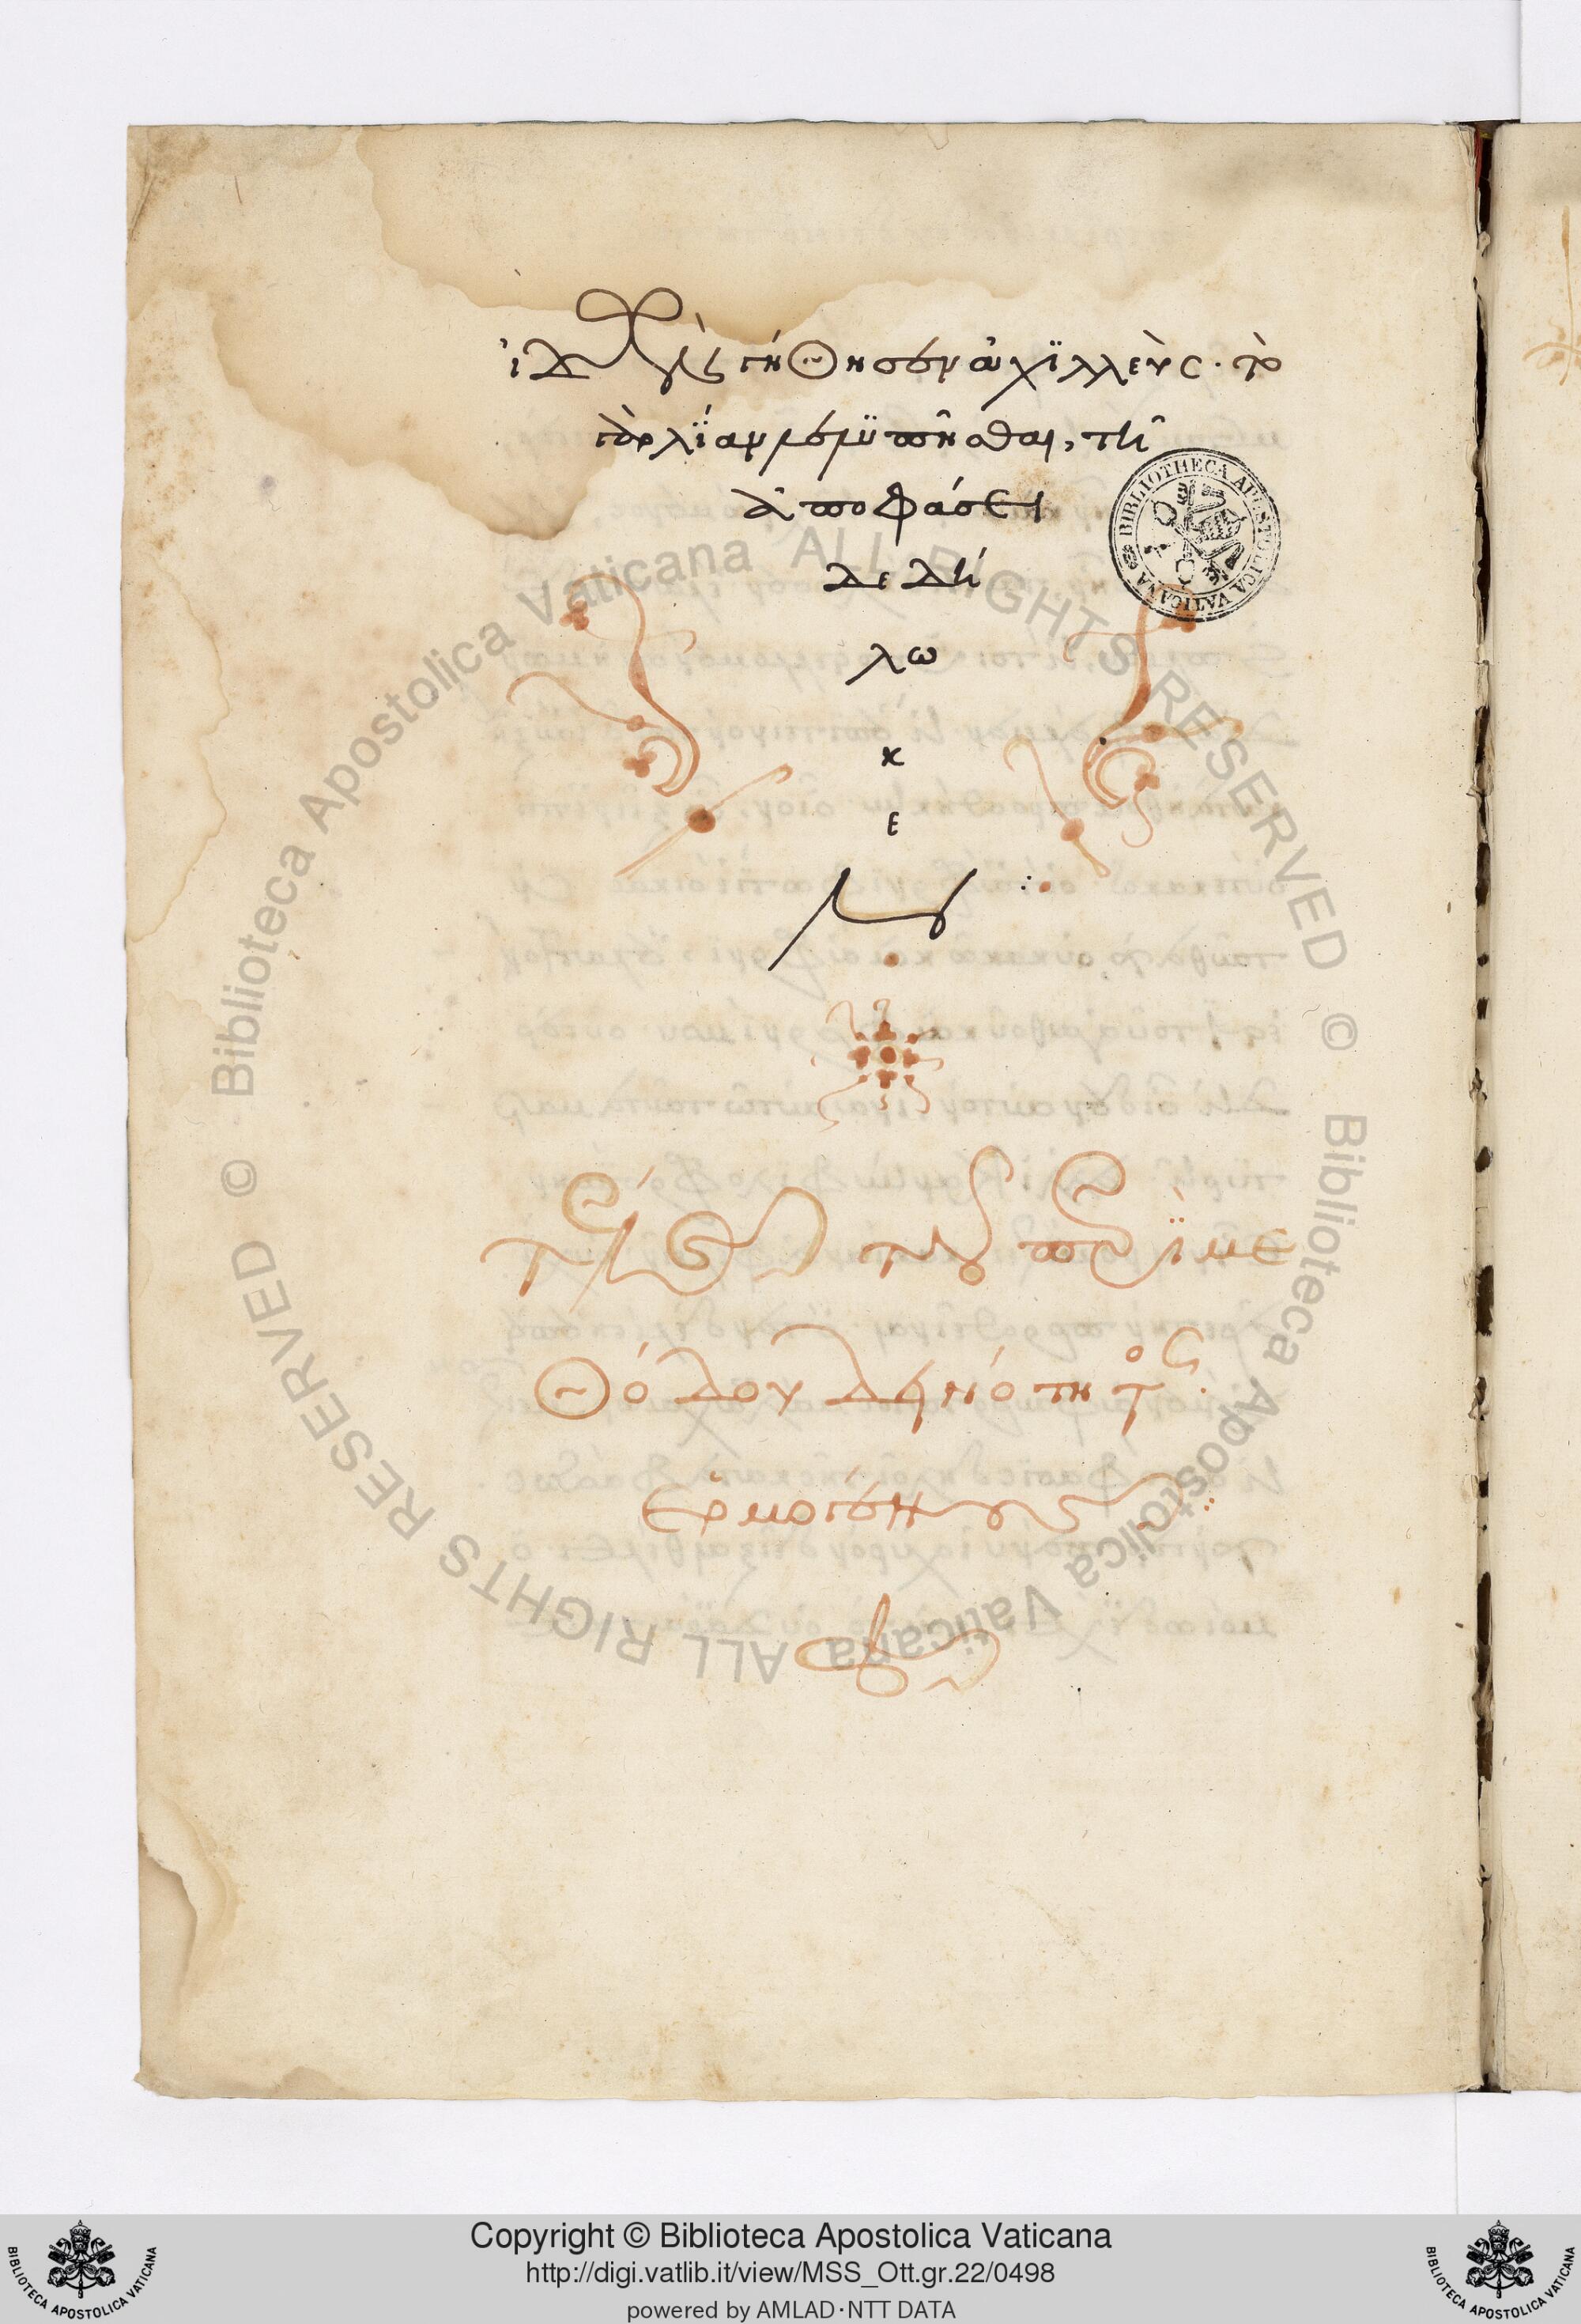 ἀχϊλλεὺς. τὸ
τῆ
ἀποφάσει
δεδή
λω
κ
ε
ν
τέλος τοῦ περὶ με
θόδου δεινότητος.
ἑρμογένους
BIBLIOTHECA APOSTOLICA VATICANA
© Biblioteca Apostolica Vaticana ALL RIGHTS RESERVED
© Biblioteca Apostolica Vaticana ALL RIGHTS RESERVED
Copyright © Biblioteca Apostolica Vaticana
http://digi.vatlib.it/view/MSS_Ott.gr.22/0498
powered by AMLAD·NTT DATA
BIBLIOTECA APOSTOLICA VATICANA
BIBLIOTECA APOSTOLICA VATICANA